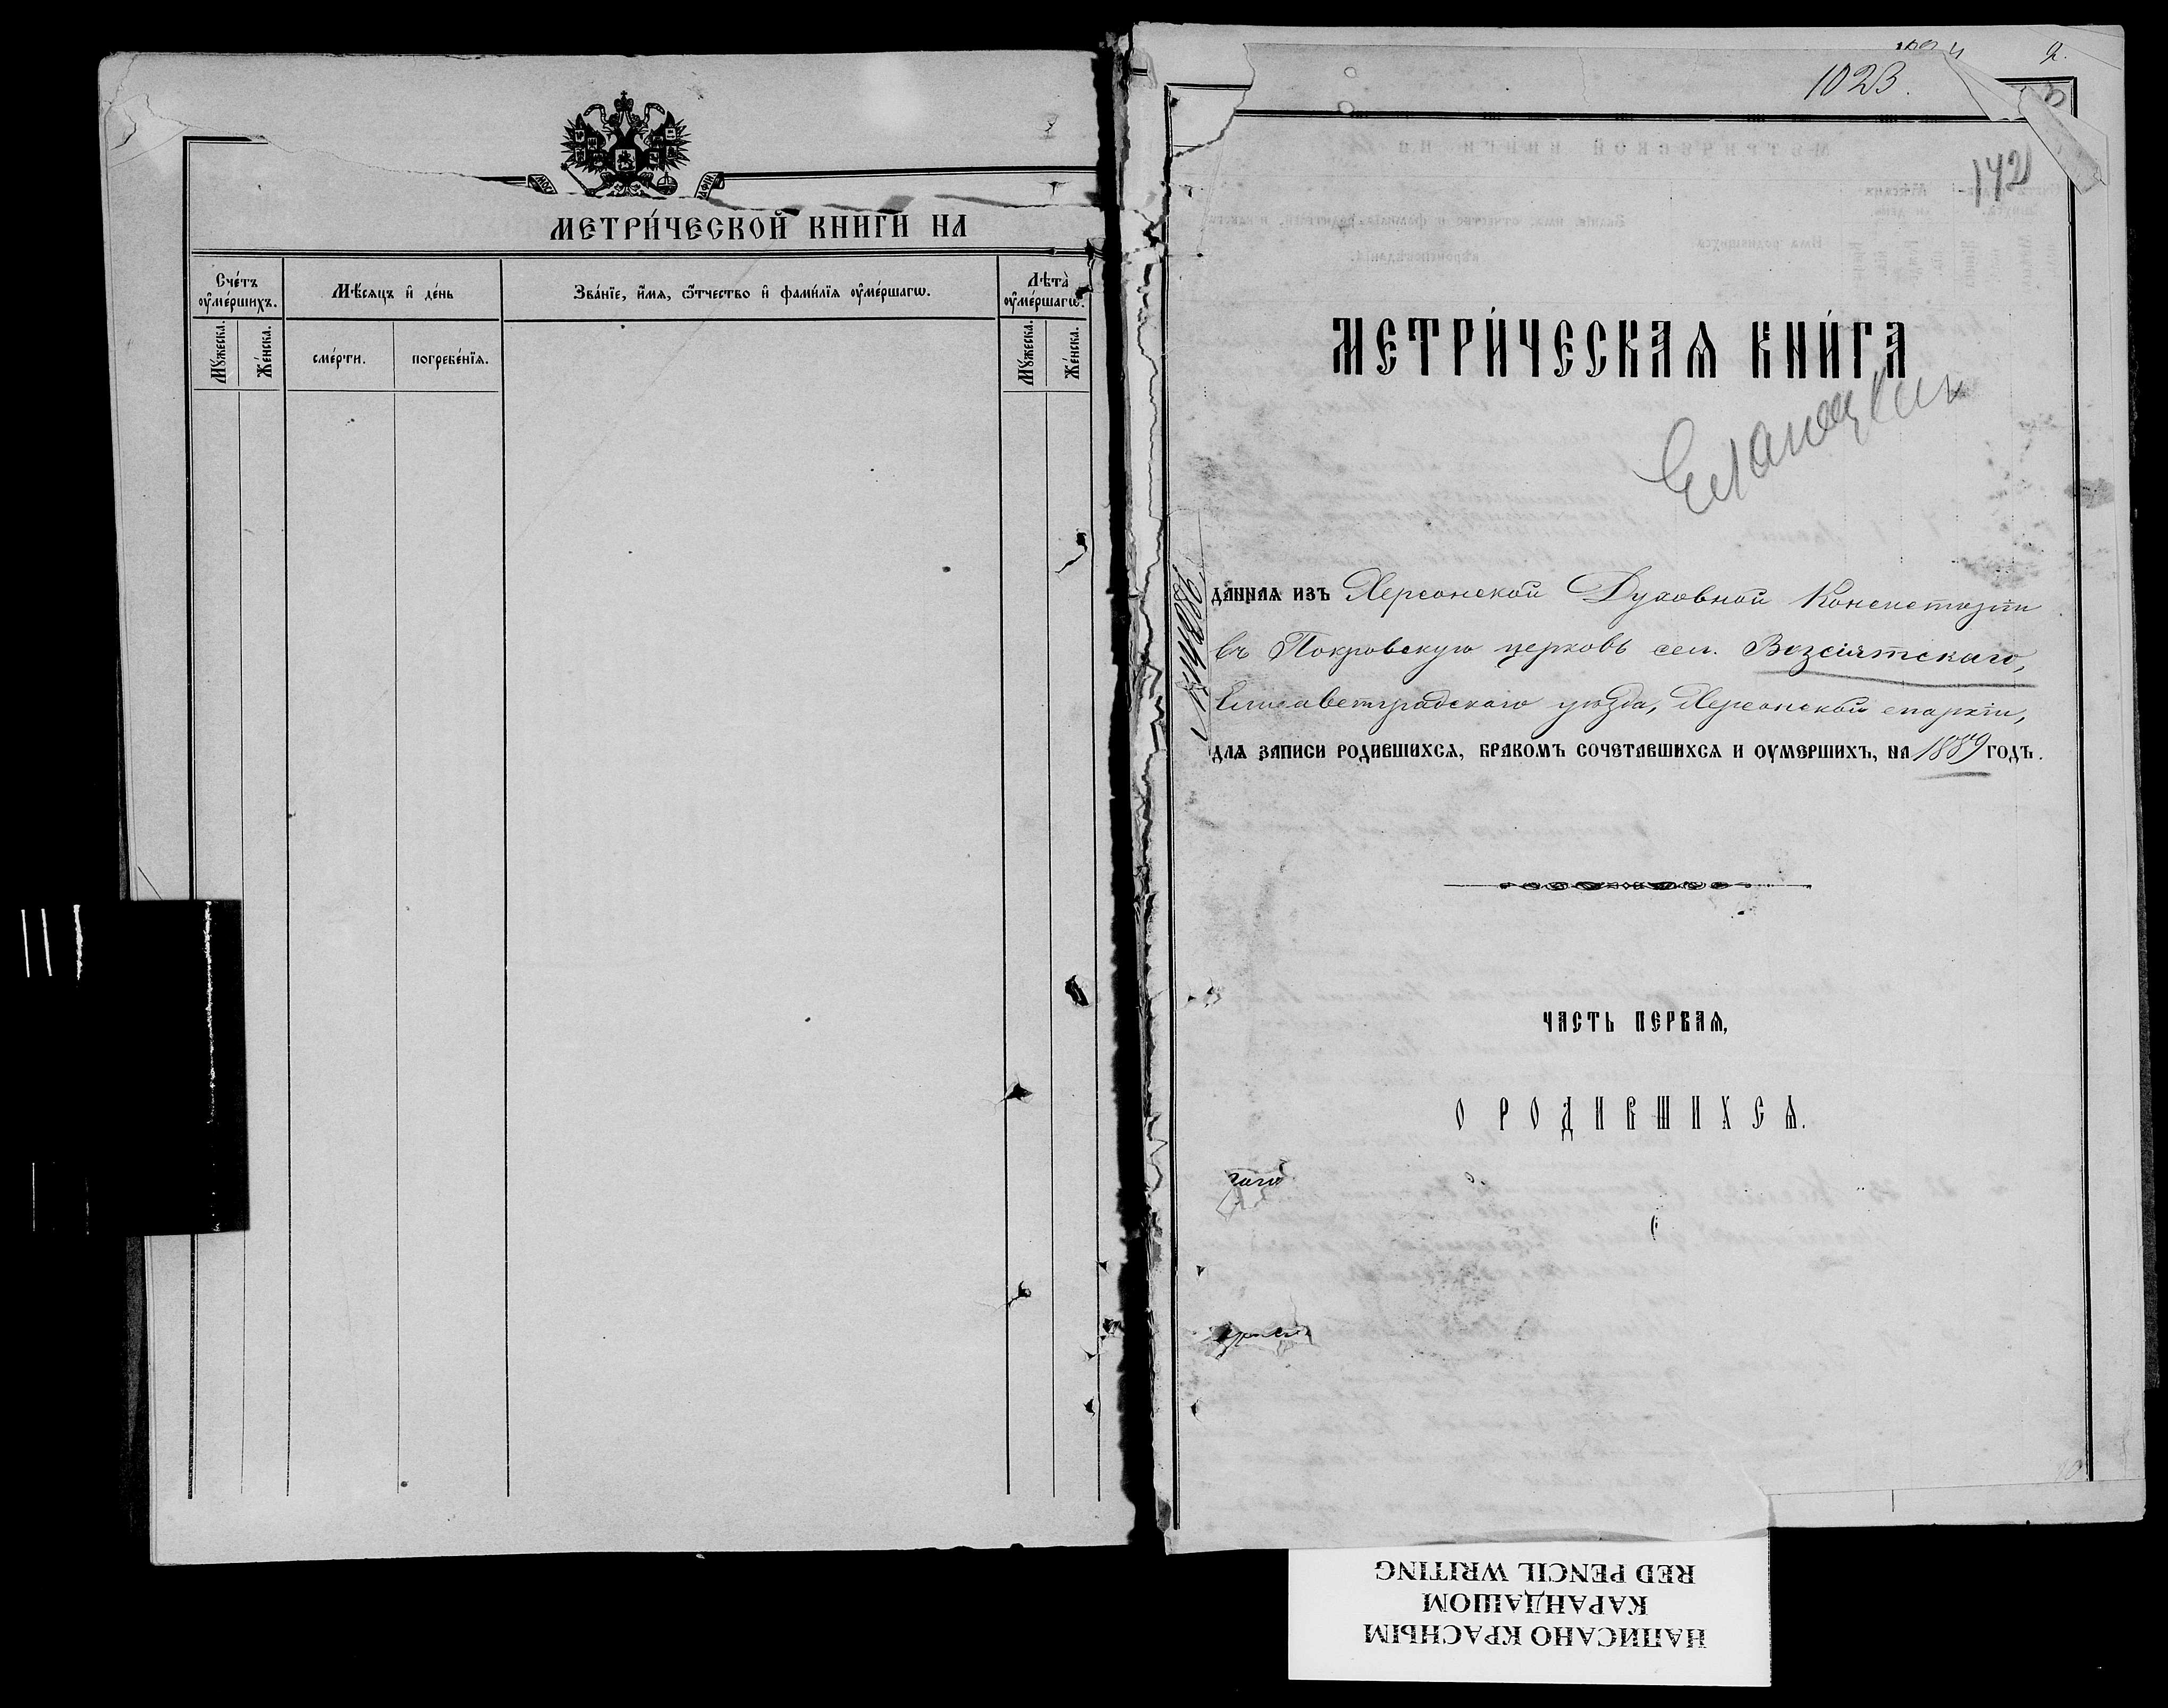 МЕТРИ́ЧЕСКОЙ КНИГИ НА
Сче́тъ оу҆ме́ршихъ.
Мѣ́сяцъ и҆ де́нь
Зва́нїе, и҆́мя, ѻ҆́тчество и҆ фами́лїя оу҆ме́ршагѡ.
Лѣта̀ оу҆ме́ршагѡ.
Му́жеска.
Же́нска.
сме́рти.
погребе́нїя.
Му́жеска.
Же́нска.
2.
1023.
142
МЕТРИ́ЧЕСКАѦ КНИ́ГА
Еланецкій
№ 14286
даннаѧ изъ Херсонской Духовной Консисторіи
въ Покровскую церковь сел. Возсіятскаго,
Елисаветградскаго уѣзда, Херсонской епархіи,
длѧ записи родившихсѧ, бракомъ сочетавшихсѧ и оумершихъ, на 1889 годъ.
ЧАСТЬ ПЕРВАѦ,
О РОДИВШИХСѦ.
НАПИСАНО КРАСНЫМ
КАРАНДАШОМ
RED PENCIL WRITING